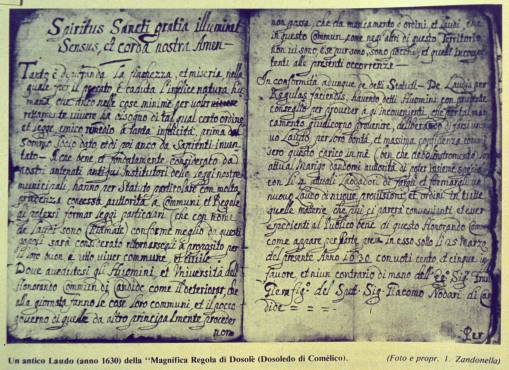 Spiritus Sancti gratia illuminet
Sensus, et corda nostra Amen—
Tanto è di uganda la fiachezza, et miseria, nella
quale per il peccato è caduta l'infelice natura hu
mana che anco nelle cose minime per voler
rettamente vivere ha bisogno di tal qual certo ordine,
et legge, unico remedio à tanta infelicità, prima dal
Sommo Iddio dato et poi anco da Sapienti inven
tato— Il che bene et fondatamente considerato da
nostri antenati institutori delle leggi nostre
municipali hanno per Statuto particolare con molta
prudenza concessa auttorità à Communi, et Regole
di potersi formar leggi particolari (che con nome
de Laudi sono chiamate) conforme meglio da questi
sarà considerato ritornarseghi à proposito per
il loro buon et utile viver commune, et civile
Dove avedutesi gli Huomini, et Università dell'
Honorando Commun di Candide come il deteriorar che
alla giornata fanno le cose loro communi, et il poco
governo di quelle da altro principalmente proceder
non
non possa, che da mancamento d'ordini, et Laudi, che
in questo Commun, come negl'altri di questo Territorio
non vi sono, et se pur sono, sono fiacchi, et quasi incompe
tenti alle presenti occorrenze—
In conformità adunque de detti Statuti— De Laudis per
Regulas faciendis, havendo detti Huomini con prudente
conseglio per proveder à gl'inconvenienti che per tal man
camento giudicorno provenire, deliberando di farsi un nuo
vo Laudo, per sorò bontà, et massima confidenza conci
sero questo carico in me (ben che debole instrumento)
attual Marigo dandomi autorità di poter insieme
con li 4 attuali Laudadori di farghi, et formarghi un
nuovo Laudo di nuove, provisioni, et ordini in tutte
quelle materie, che più ci parerà convenienti et ever
expedienti al Publico bene di questo Honorando Com
come appar per parte presa in esso sotto li 25 Marzo
del presente Anno 1630 con voti cento, et cinque in
favore, et niun contrario di mano dell'Ecc. Sig.
Giera fig.º del Spet. Sig. Giacomo Nodari di Can
dide
Per
Un antico Laudo (anno 1630) della "Magnifica Regola di Dosolè (Dosoledo di Comélico).
(Foto e propr. I. Zandonella)